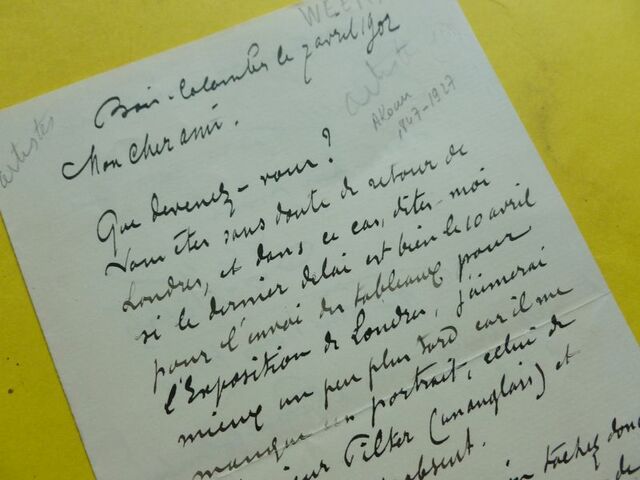 WEE
artistes
artiste
Akoun
1847-1927
Bois-Colombes le 7 avril 1902
Mon cher ami.
Que devenez-vous ?
Vous êtes sans doute de retour de
Londres, et dans ce cas, dites-moi
si le dernier délai est bien le 10 avril
pour l'envoi des tableaux pour
l'Exposition de Londres, j'aimerai
mieux un peu plus tard car il me
manque un portrait, celui de
Tilter (un anglais) et
absent.
tachez donc
de